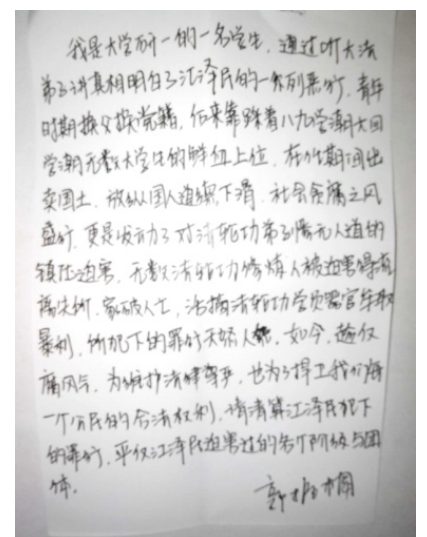 我是大学研一的一名学生，通过听大法
弟子讲真相明白了江泽民的一系列恶行，青年
时期换父换党籍，后来靠踩着八九学潮大四
学潮无数大学生的鲜血上位，在此期间出
卖国土，放纵国人道德下滑，社会贪腐之风
盛行，更是发动了对法轮功弟子惨无人道的
镇压迫害，无数法轮功修炼人被迫害得流
离失所，家破人亡，活摘法轮功学员器官牟取
暴利，所犯下的罪行天怒人怨，如今，趁仅
腐风气，为维护法律尊严，也为了捍卫我们每
一个公民的合法权利，请清算江泽民犯下
的罪行，平反江泽民迫害过的各个阶级与团
体。